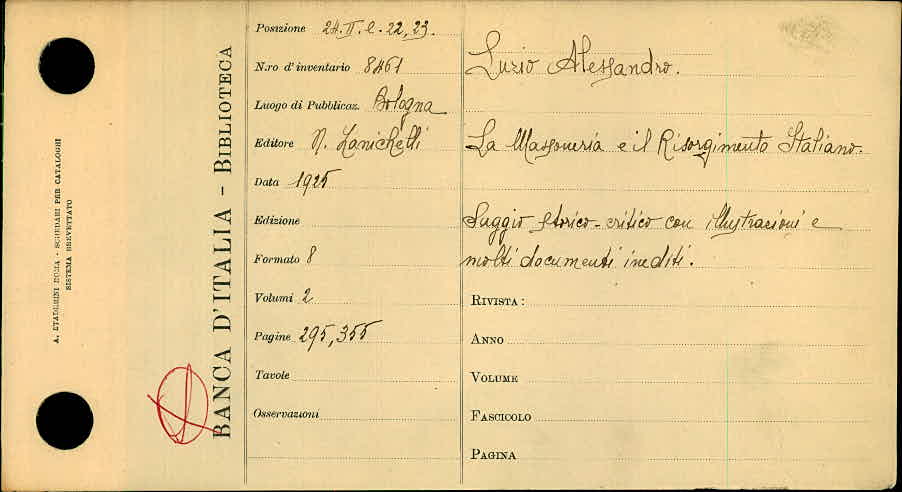 A. STADERINI ROMA - SCHEDARI PER CATALOGHI
SISTEMA BREVETTATO
BANCA D'ITALIA - BIBLIOTECA
Posizione 24.II.e.22,23.
N.ro d'inventario 8461
Luogo di Pubblicaz. Bologna
Editore N. Zanichelli
Data 1925
Edizione
Formato 8
Volumi 2
Pagine 295, 355
Tavole
Osservazioni
Luzio Alessandro.
La Massoneria e il Risorgimento Italiano.
Saggio storico-critico con illustrazioni e
molti documenti inediti.
RIVISTA:
ANNO
VOLUME
FASCICOLO
PAGINA